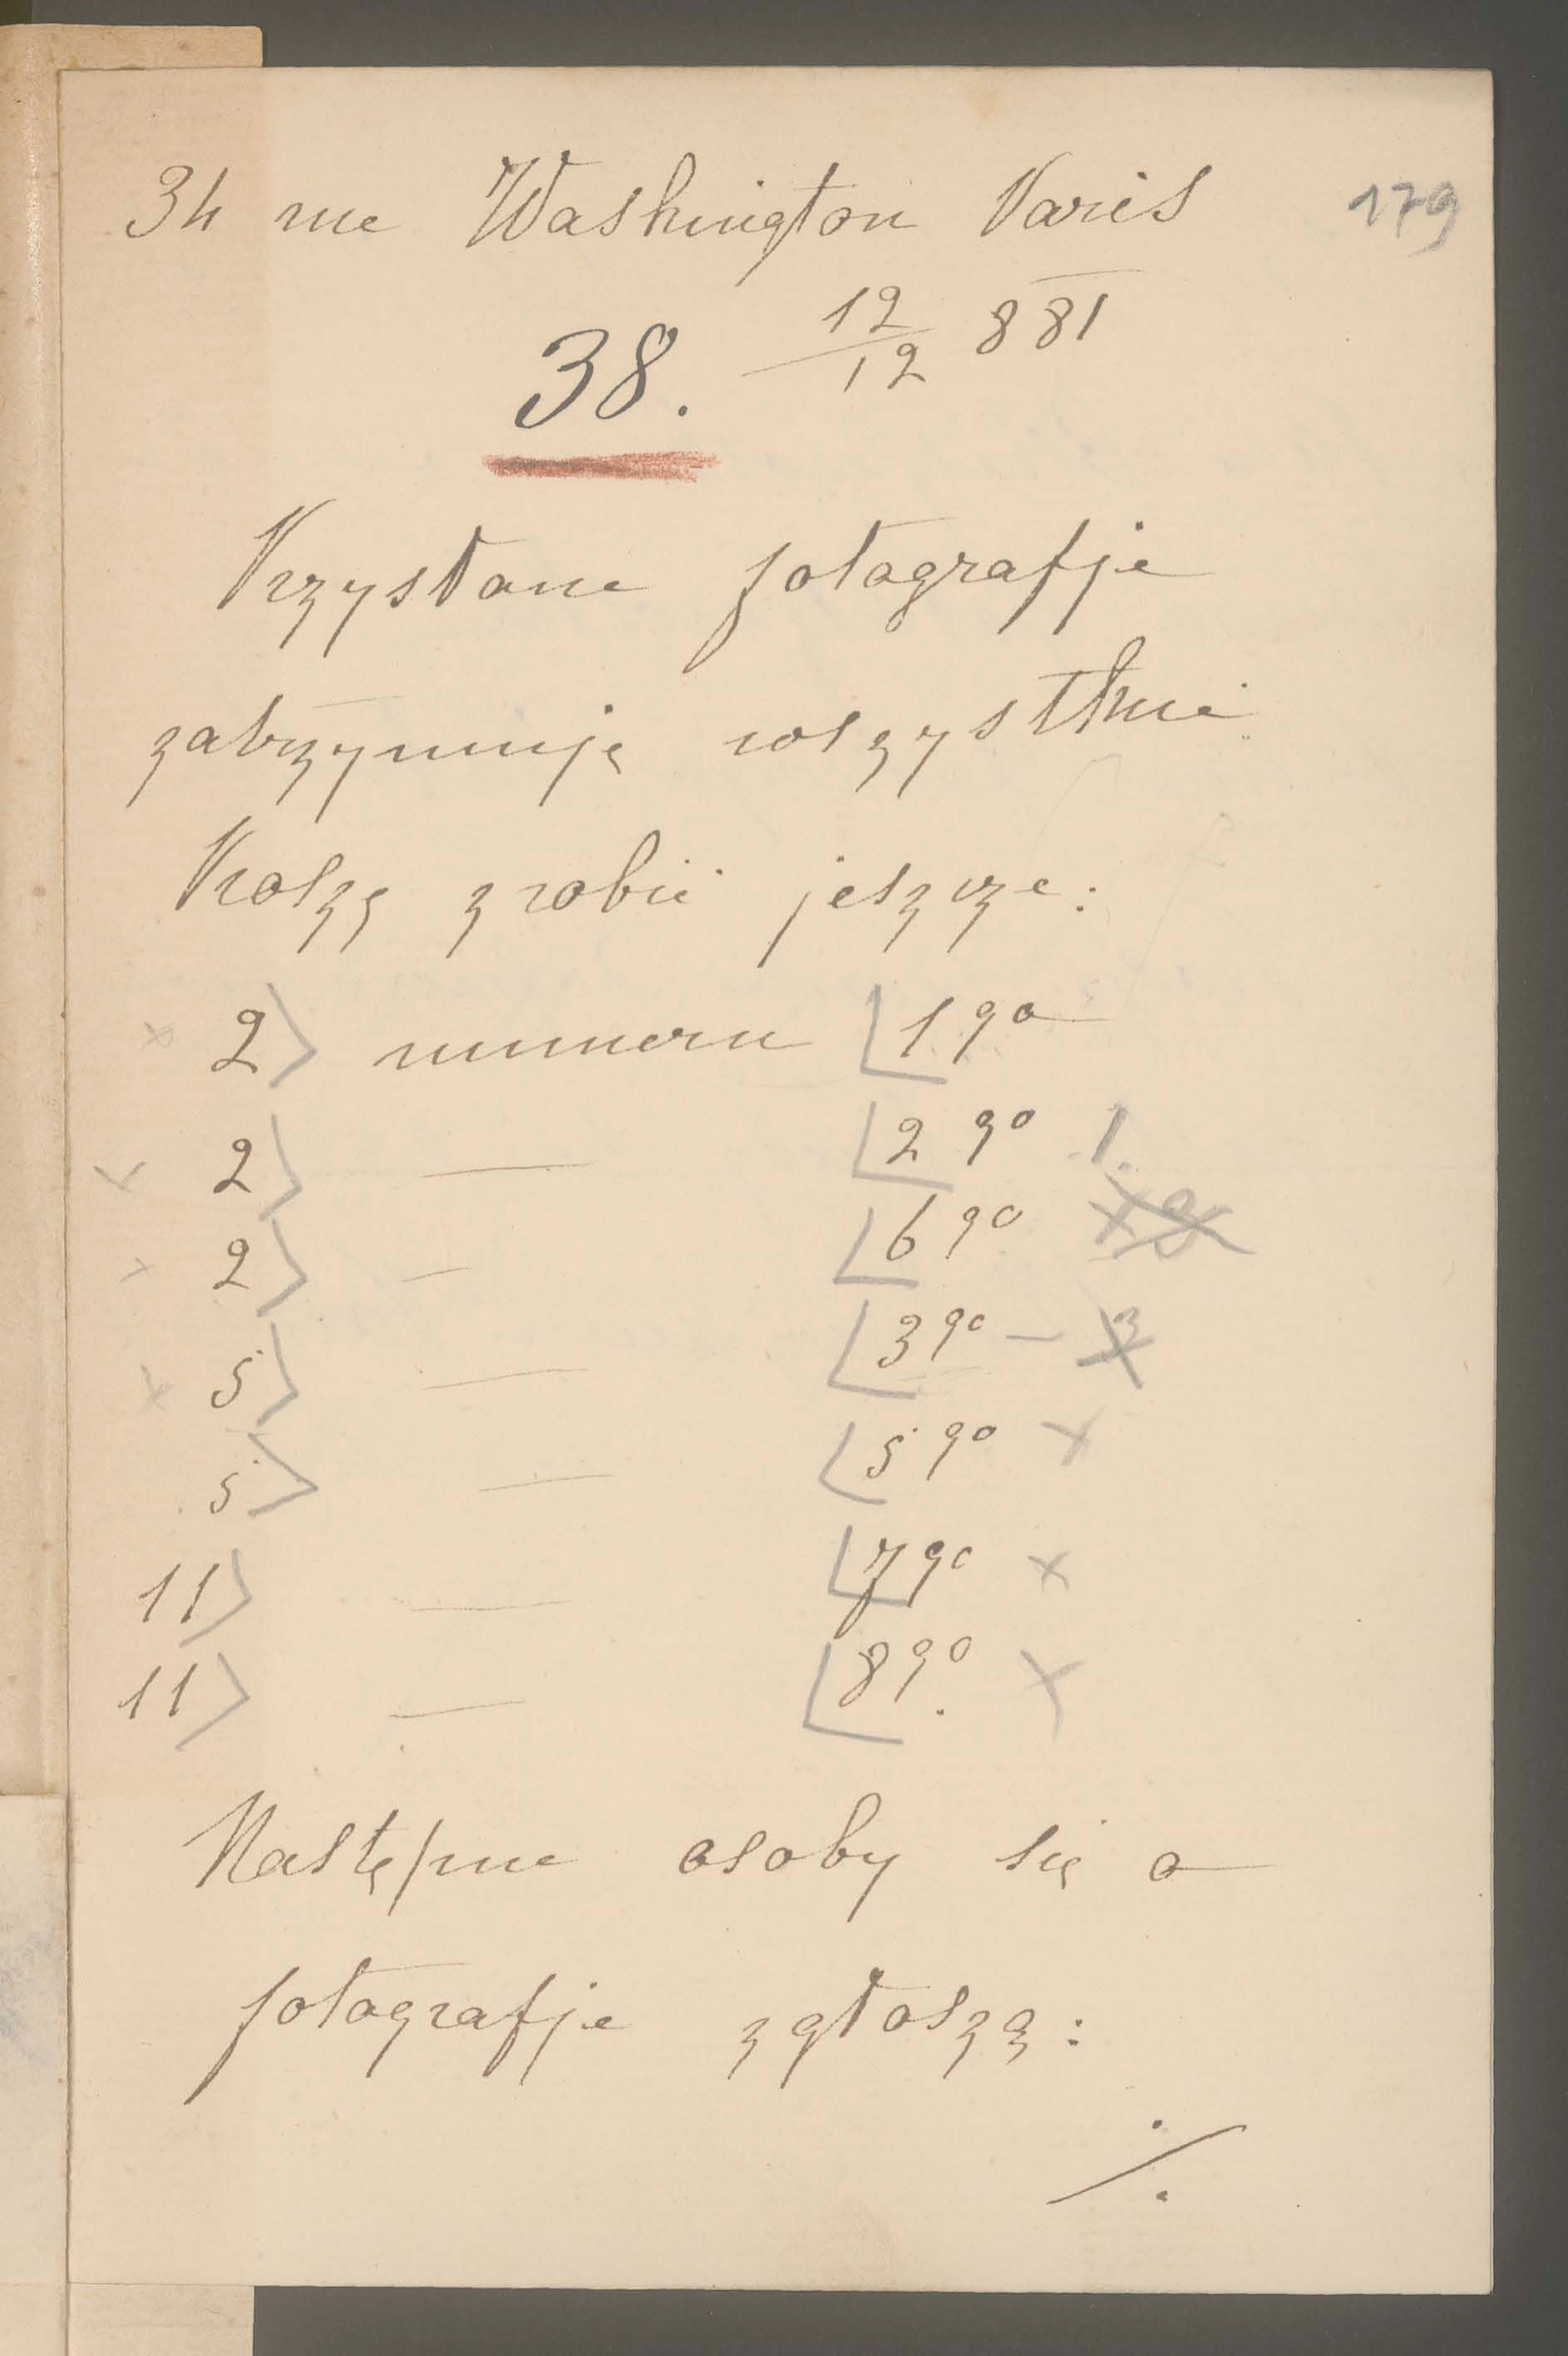 34 rue Washington Paris 179
12/12 881
38.
Przysłane fotografje
zatrzymuję wszystkie
Proszę zrobić jeszcze:
2) numeru 1go
2) — 2go 1.
2) — 6go
5) — 3go —
5) — 5go x
11) — 7go x
11) — 8go. x
Następne osoby się o
fotografje zgłoszą:
./.